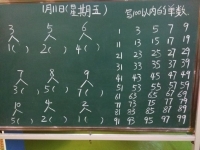 1月11日(星期五) 写100以内的单数
3 5 6
1( ) 2( ) 4( )
7 8 9
3( ) 5( ) 7( )
10 4 2
5( ) 2( ) 1( )
1 3 5 7 9
11 13 15 17 19
21 23 25 27 29
31 33 35 37 39
41 43 45 47 49
51 53 55 57 59
61 63 65 67 69
71 73 75 77 79
81 83 85 87 89
91 93 95 97 99